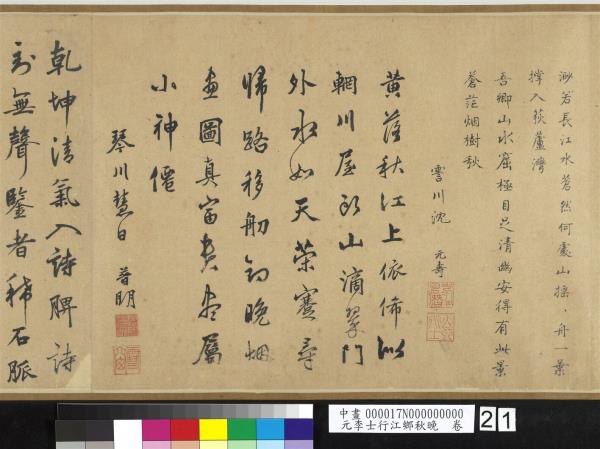 渺若長江水蒼然何處山搖〻舟一葉
撑入荻蘆灣
吾鄉山水窟極目足清幽安得有此景
蒼茫烟樹秋
霅川沈元壽
黃落秋江上依俙似
輞川屋頭山滴翠門
外水如天策蹇尋
歸路移舠釣晚烟
畫圖真富貴盡屬
小神僊
琴川慧日普明
乾坤清氣入詩脾詩
到無聲鑒者稀石脈
中畫 000017N000000000
元李士行江鄉秋晚 卷
21